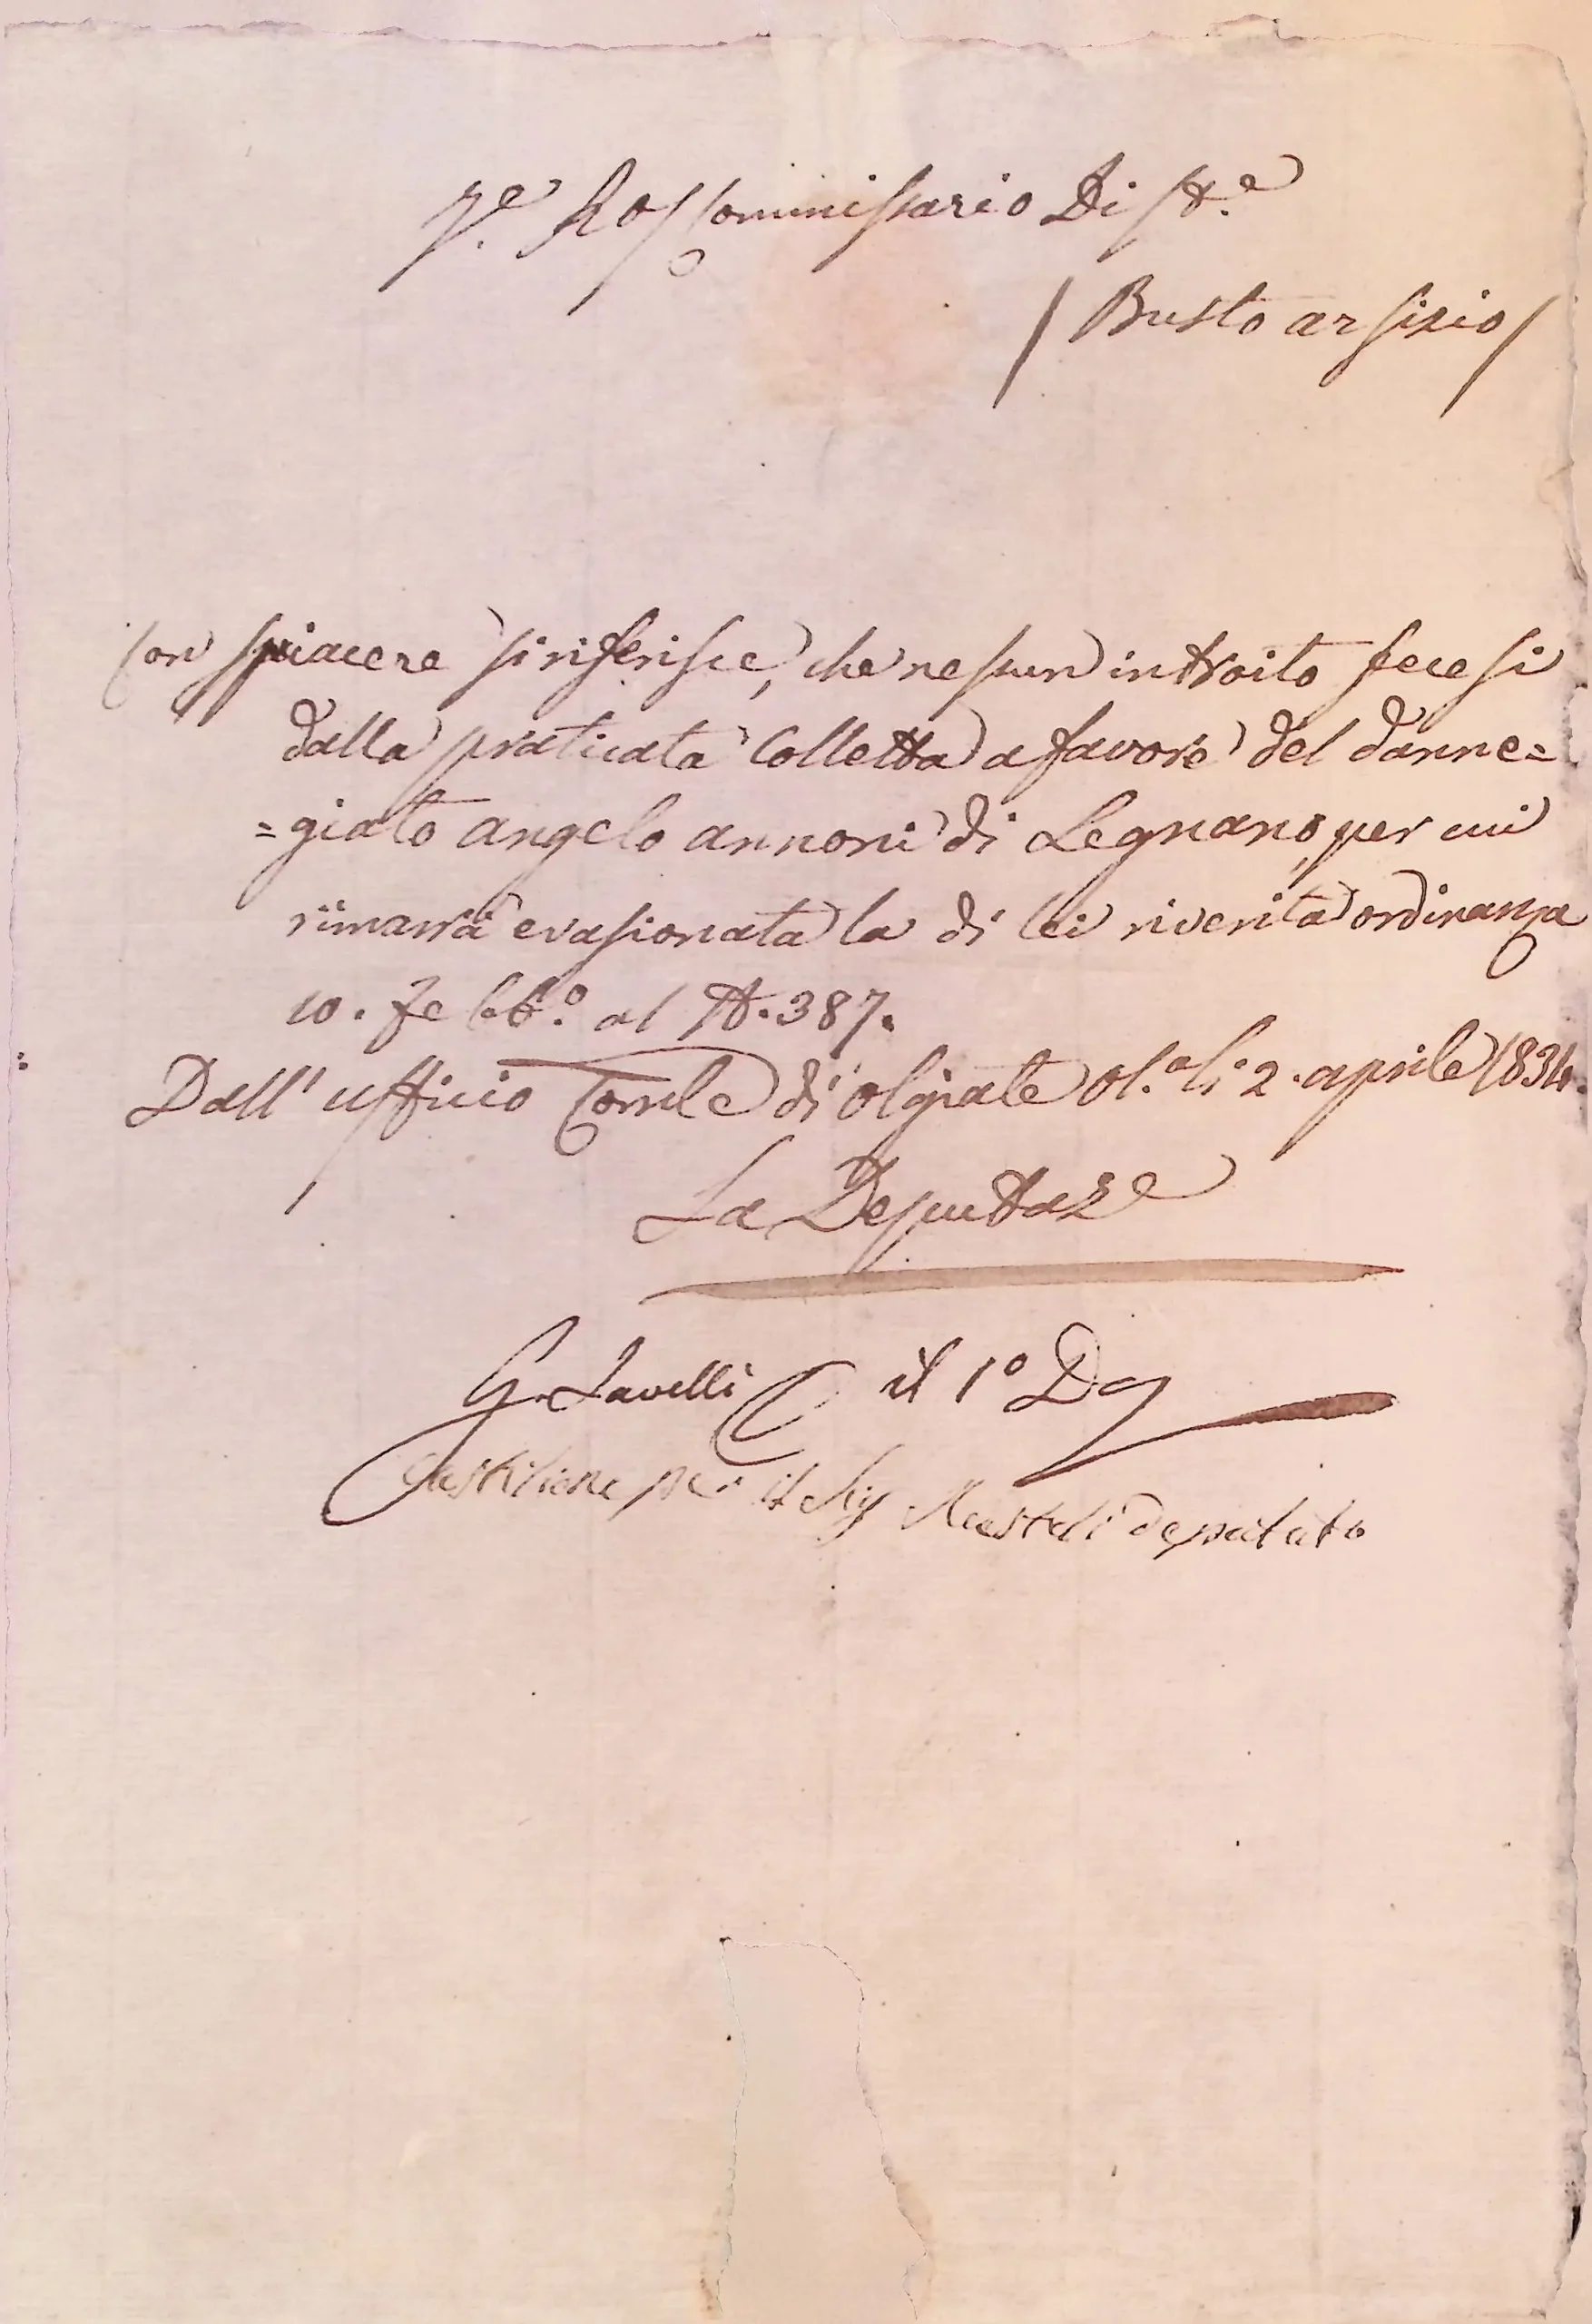 Commissario Dist.e
/ Busto arsizio /
Con spiacere si riferisce, che nessun introito fecesi
dalla praticata Colletta a favore del danne=
=giato angelo annoni di Legnano, per cui
rimarrà evasionata la di lei riverita ordinanza
10. Febb.o al N. 387.
Dall' ufficio Comle di olgiate ol.a li 2. aprile 1834.
La Deputaze
G Lavelli il 1o D
per il Sig deputato